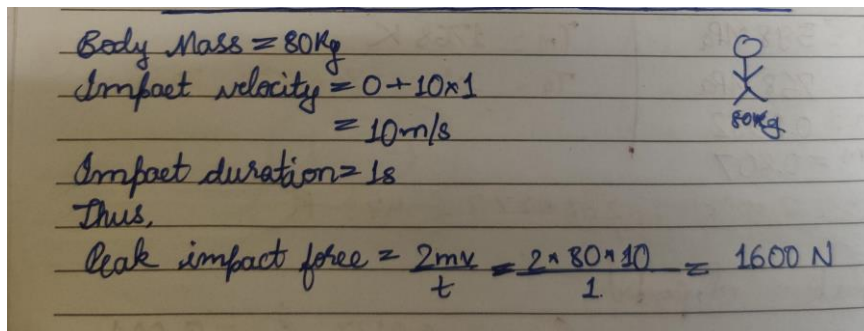 Body Mass = 80Kg
Impact velocity = 0+10×1
= 10m/s
80Kg
Impact duration = 1s
Thus,
Peak impact force = 2mv/t = 2×80×10/1 = 1600 N